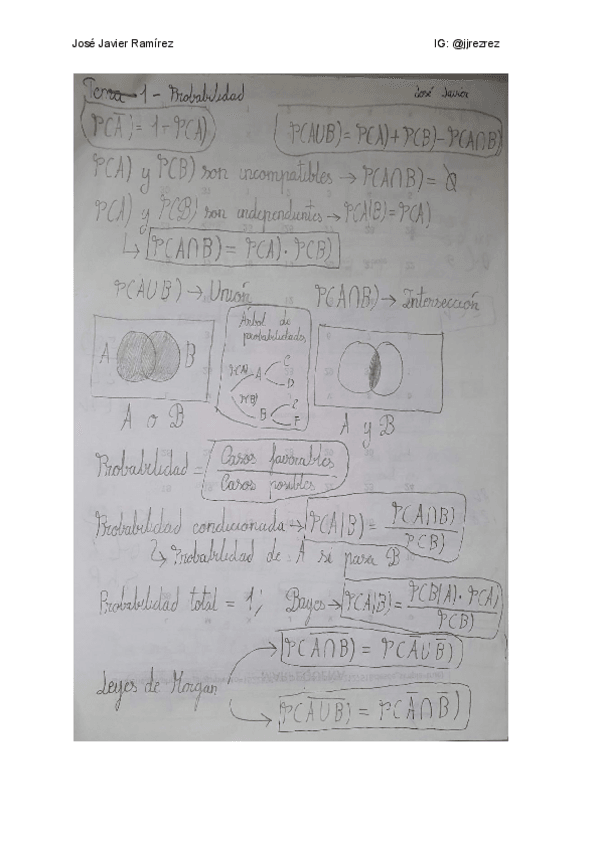 José Javier Ramírez IG: @jjrezrez
Tema 1 - Probabilidad José Javier
P(A̅) = 1 - P(A) P(A∪B) = P(A) + P(B) - P(A∩B)
P(A) y P(B) son incompatibles → P(A∩B) = Ø
P(A) y P(B) son independientes → P(A|B) = P(A)
↳ P(A∩B) = P(A) · P(B)
P(A∪B) → Unión P(A∩B) → Intersección
Árbol de
probabilidades
A B
P(A) A C
D
P(B) B E
F
A o B A y B
Probabilidad = Casos favorables
Casos posibles
Probabilidad condicionada → P(A|B) = P(A∩B)
P(B)
↳ Probabilidad de A si pasa B
Probabilidad total = 1; Bayes → P(A|B) = P(B|A) · P(A)
P(B)
Leyes de Morgan
P(A̅∩̅B̅) = P(A̅∪B̅)
P(A̅∪̅B̅) = P(A̅∩B̅)